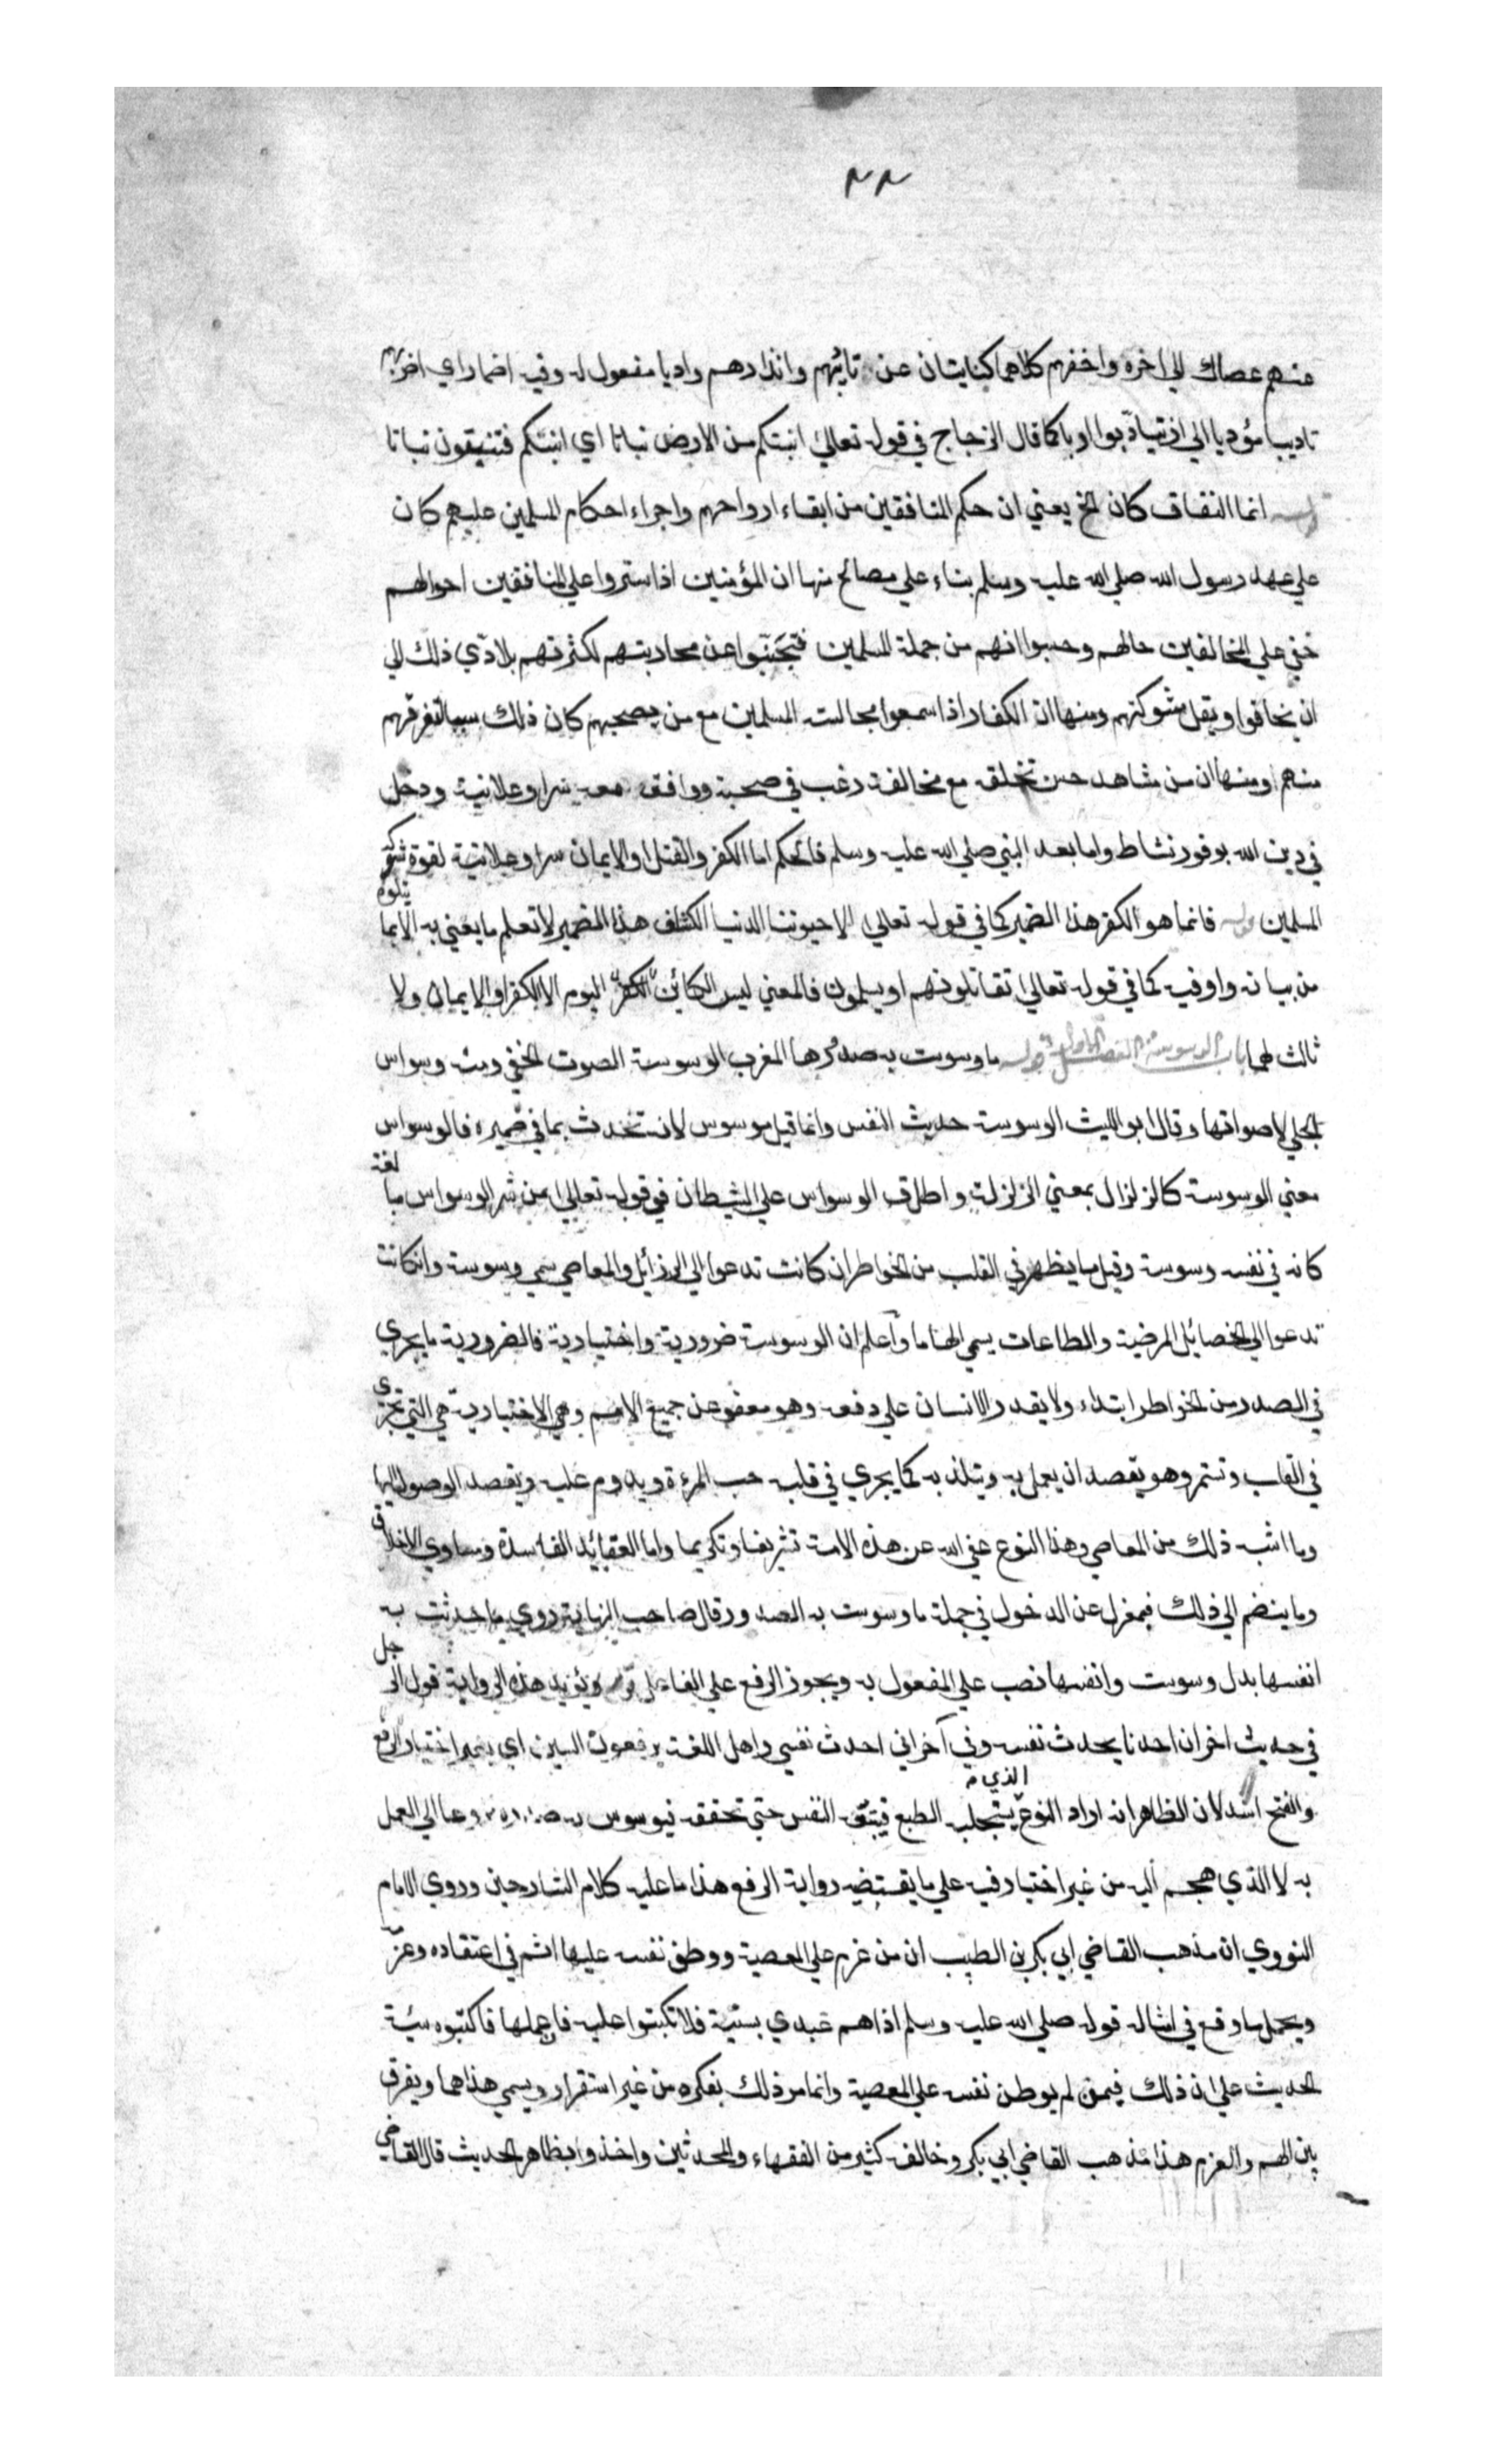 ٢٢
عنهم عصاك الي اخره واخفهم كلاهما كنايتان عن تاديبهم وانذارهم وادبا مفعول له وفيه اضمار اي اضربهم
تاديبا مؤديا الي ان يتادبوا ادبا كما قال الزجاج في قوله تعالي انبتكم من الارض نباتا اي انبتكم فتنبتون نباتا
قوله انما النفاق كان الخ يعني ان حكم المنافقين من ابقاء ارواحهم واجراء احكام المسلمين عليهم كان
علي عهد رسول الله صلي الله عليه وسلم بناء علي مصالح منها ان المؤمنين اذا ستروا علي المنافقين احوالهم
خفي علي المخالفين حالهم وحسبوا انهم من جملة المسلمين فتجنبوا عن محاربتهم لكثرتهم بلا دي ذلك الي
ان يخافوا ويقل شوكتهم ومنها ان الكفار اذا سمعوا مجالسة المسلمين مع من يصحبهم كان ذلك سببا لتفرقهم
منهم ومنها ان من شاهد حسن تخلقه مع مخالفة رغب في صحبة ووافق معه سرا وعلانية ودخل
في دين الله بوفور نشاط واما بعد النبي صلي الله عليه وسلم فالحكم اما الكفر والقتل او الايمان سرا وعلانية لقوة شوكة
المسلمين قوله فانما هو الكفر هذا الضمير كما في قوله تعالي الا حيوتنا الدنيا الكشاف هذا الضمير لا تعلم ما يعني به الا بما يتلوه
من بيانه واو فيه كما في قوله تعالي تقاتلونهم او يسلمون فالمعني ليس الكائن اليوم الا الكفر او الايمان ولا
ثالث لهما باب الوسوسة الفصل الاول قوله ما وسوست به صدورها المغرب الوسوسة الصوت الخفي ومنه وسواس
الحلي لاصواتها وقال ابو الليث الوسوسة حديث النفس وانما قيل موسوس لانه تحدث بما في ضميره فالوسواس
معني الوسوسة كالزلزال بمعني الزلزلة واطلاق الوسواس علي الشيطان في قوله تعالي من شر الوسواس مبالغة
كانه في نفسه وسوسة وقيل ما يظهر في القلب من الخواطر ان كانت تدعوا الي الرذائل والمعاصي سمي وسوسة وان كانت
تدعوا الي الخصائل المرضية والطاعات يسمي الهاما واعلم ان الوسوسة ضرورية واختيارية فالضرورية ما يجري
في الصدر من الخواطر ابتداء ولا يقدر الانسان علي دفعه وهو معفو عن جميع الامم وهي الاختيارية هي التي تجري
في القلب وتستمر وهو يقصد ان يعمل به ويتلذذ به كما يجري في قلبه حب المرءة ويدوم عليه ويقصد الوصول اليها
وما اشبه ذلك من المعاصي وهذا النوع عفي الله عن هذه الامة تشريفا وتكريما واما العقائد الفاسدة ومساوي الاخلاق
وما ينضم الي ذلك فبمعزل عن الدخول في جملة ما وسوست به الصدور وقال صاحب النهاية روي ما حدثت به
انفسها بدل وسوست وانفسها نصب علي المفعول به ويجوز الرفع علي الفاعل ويؤيد هذه الرواية قول الرجل
في حديث اخر ان احدنا يحدث نفسه وفي آخر اني احدث نفسي واهل اللغة يرفعون السين اي بغير اختيار الرفع
والفتح اشد لان الظاهر انه اراد النوع الذي يستجلبه الطبع النفس حتي تحققه فيوسوس به دعا الي العمل
به لا الذي هجم اليه من غير اختيار فيه علي ما يقتضيه رواية الرفع هذا ما عليه كلام الشارحين وروي الامام
النووي ان مذهب القاضي ابي بكر بن الطيب ان من عزم علي المعصية ووطن نفسه عليها اثم في اعتقاده وعزمه
ويحمل ما وقع في امثاله قوله صلي الله عليه وسلم اذا هم عبدي بسيئة فلا تكتبوا عليه فان عملها فاكتبوه سيئة
الحديث علي ان ذلك فيمن لم يوطن نفسه علي المعصية وانما مر ذلك بفكره من غير استقرار ويسمي هذا هما ويفرق
بين الهم والعزم هذا مذهب القاضي ابي بكر وخالفه كثير من الفقهاء والمحدثين واخذوا بظاهر الحديث قال القاضي